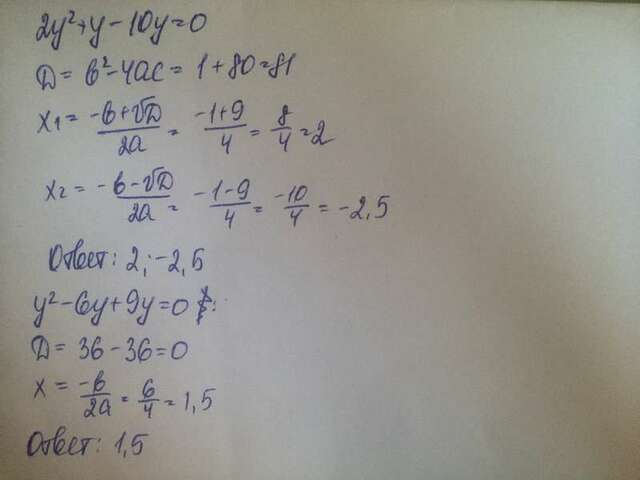 2y²+y-10y=0
D = b²-4ac = 1+80=81
x₁ = -b+√D/2a = -1+9/4 = 8/4 = 2
x₂ = -b-√D/2a = -1-9/4 = -10/4 = -2,5
Ответ: 2; -2,5
y²-6y+9y=0
D = 36-36=0
x = -b/2a = 6/4 = 1,5
Ответ: 1,5